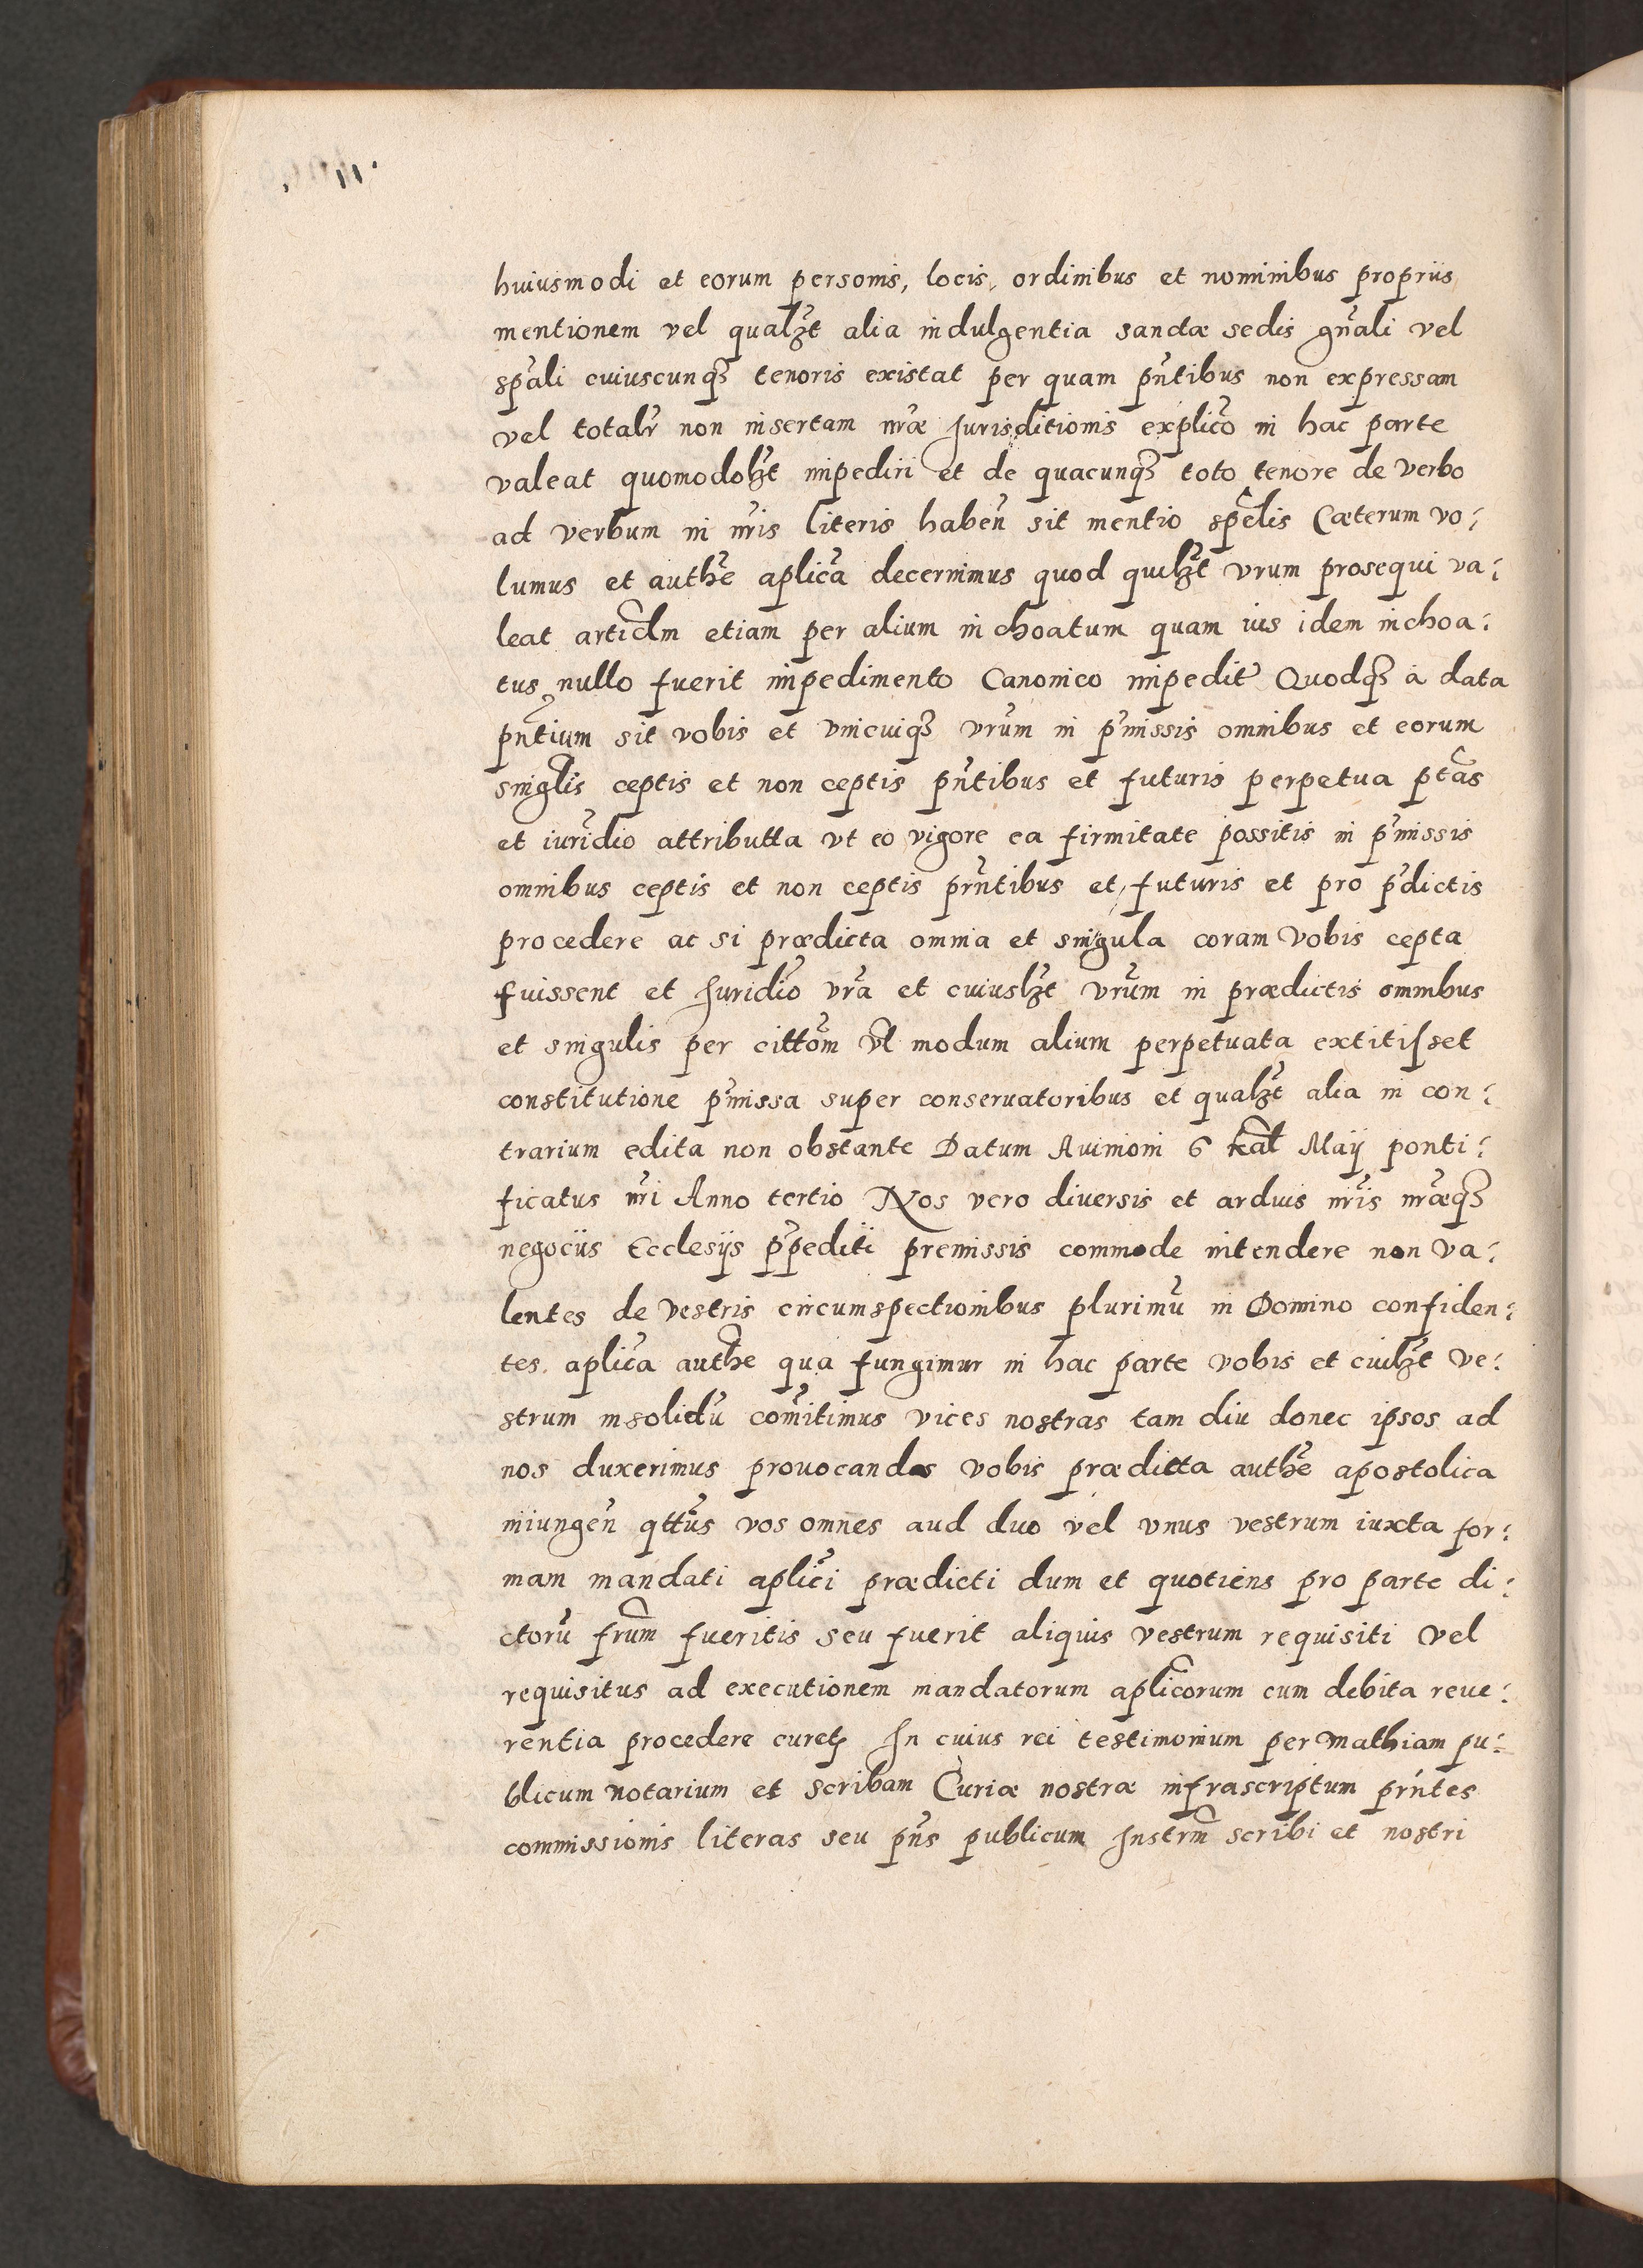 huiusmodi et eorum personis, locis, ordinibus et nominibus propriis
mentionem vel qualꝫt alia indulgentia sanctæ sedis gn̄ali vel
sp̄ali cuiuscunqꝫ tenoris existat per quam pn̄tibus non expressam
vel totalr̄ non insertam nr̄æ Jurisditionis explicō in hac parte
valeat quomodolꝫt impediri et de quacunqꝫ toto tenore de verbo
ad verbum in nr̄is literis haben̄ sit mentio spēlis Cæterum vo:
lumus et authē aplicā decernimus quod quilꝫt vrum prosequi va:
leat articl̄m etiam per alium inchoatum quam ius idem inchoa:
tus nullo fuerit impedimento Canonico impedit᷑ Quodqꝫ à data
pn̄tium sit vobis et vnicuiqꝫ vrūm in p̄missis omnibus et eorum
singl̄is ceptis et non ceptis pn̄tibus et futuris perpetua ptās
et iurīdio attributta vt eo vigore ea firmitate possitis in p̄missis
omnibus ceptis et non ceptis prn̄tibus et futuris et pro p̄dictis
procedere ac si prædicta omnia et singula coram vobis cepta
fuissent et Juridīo vrā et cuiuslꝫt vrūm in prædictis omnibus
et singulis per cittōm vl̄ modum alium perpetuata extitisset
constitutione p̄missa super conseruatoribus et qualꝫt alia in con:
trarium edita non obstante Datum Auinioni 6 kal̄ Maij ponti:
ficatus nr̄i Anno tertio Nos vero diuersis et arduis nr̄is nr̄æqꝫ
negociis Ecclesijs p̄pediti premissis commode intendere non va:
lentes de vestris circumspectionibus plurimū in Domino confiden:
tes. aplicā authē qua fungimur in hac parte vobis et cuilꝫt ve:
strum insolidū com̄itimus vices nostras tam diu donec ipsos ad
nos duxerimus prouocandos vobis prædicta authē apostolica
iniungen̄ qttūs vos omnes aud duo vel vnus vestrum iuxta for:
mam mandati aplicī prædicti dum et quotiens pro parte di:
ctorū frūm fueritis seu fuerit aliquis vestrum requisiti vel
requisitus ad executionem mandatorum aplicōrum cum debita reue:
rentia procedere curetꝫ In cuius rei testimonium per Mathiam pu:
blicum notarium et scribam Curiæ nostræ infrascriptum prn̄tes
commissionis literas seu pn̄s publicum Instrm̄ scribi et nostri